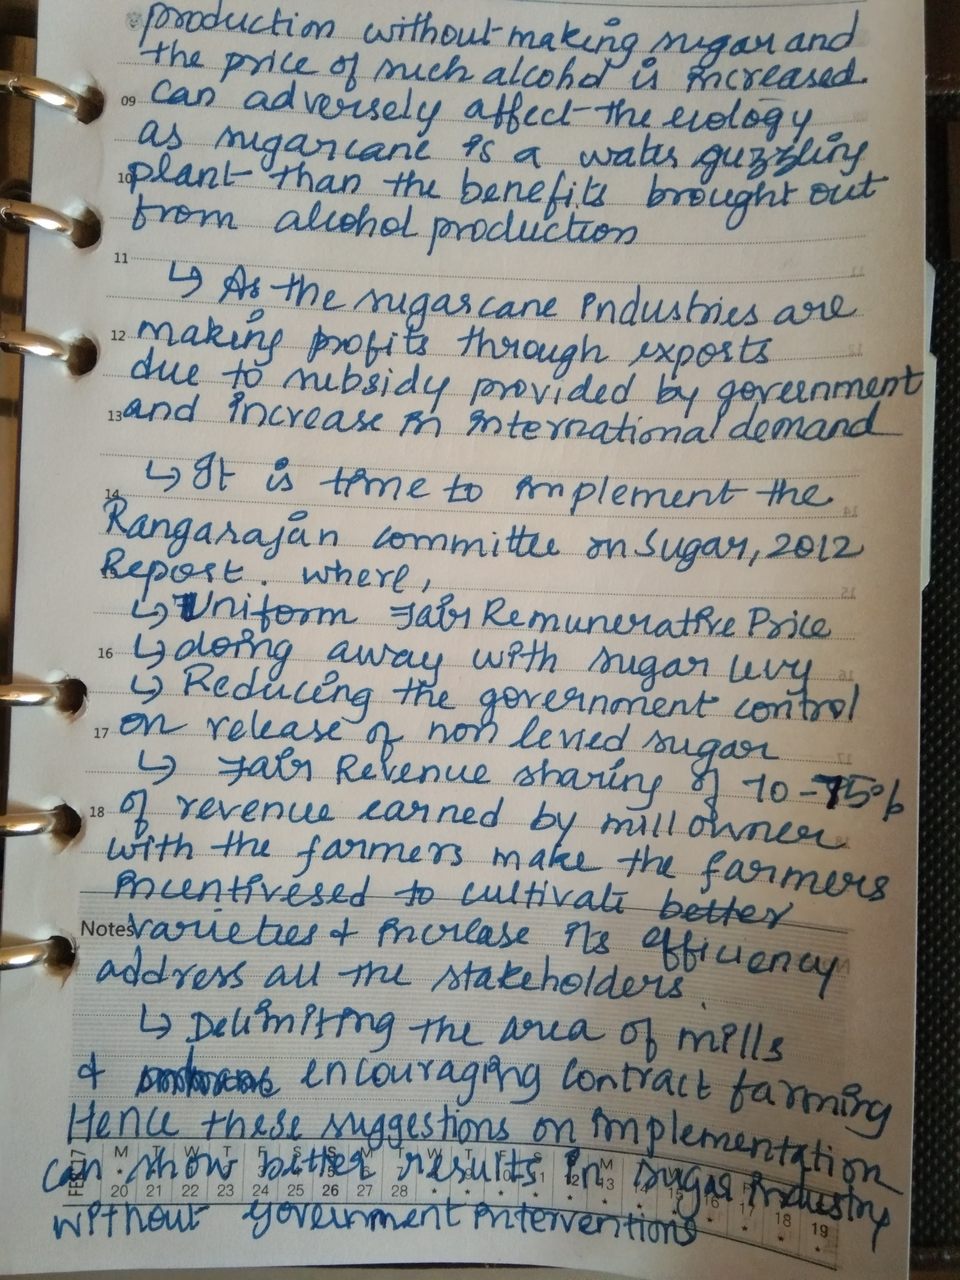 production without making sugar and
the price of such alcohol is increased
09 can adversely affect the ecology
as sugarcane is a water guzzling
10 plant than the benefits brought out
from alcohol production
11
↳ As the sugarcane industries are
12 making profits through exports
due to subsidy provided by government
13 and increase in international demand
↳ It is time to implement the
14
Rangarajan committee on Sugar, 2012
Report. where,
↳ Uniform Fair Remunerative Price
16 ↳ doing away with sugar levy
↳ Reducing the government control
17 on release of non levied sugar
↳ Fair Revenue sharing of 70-75%
18 of revenue earned by mill owner
with the farmers make the farmers
incentivesed to cultivate better
Notes varieties & increase its efficiency
address all the stakeholders.
↳ Delimiting the area of mills
& encouraging contract farming
Hence these suggestions on implementation
can show better results in sugar industry
20 21 22 23 24 25 26 27 28
without government interventions